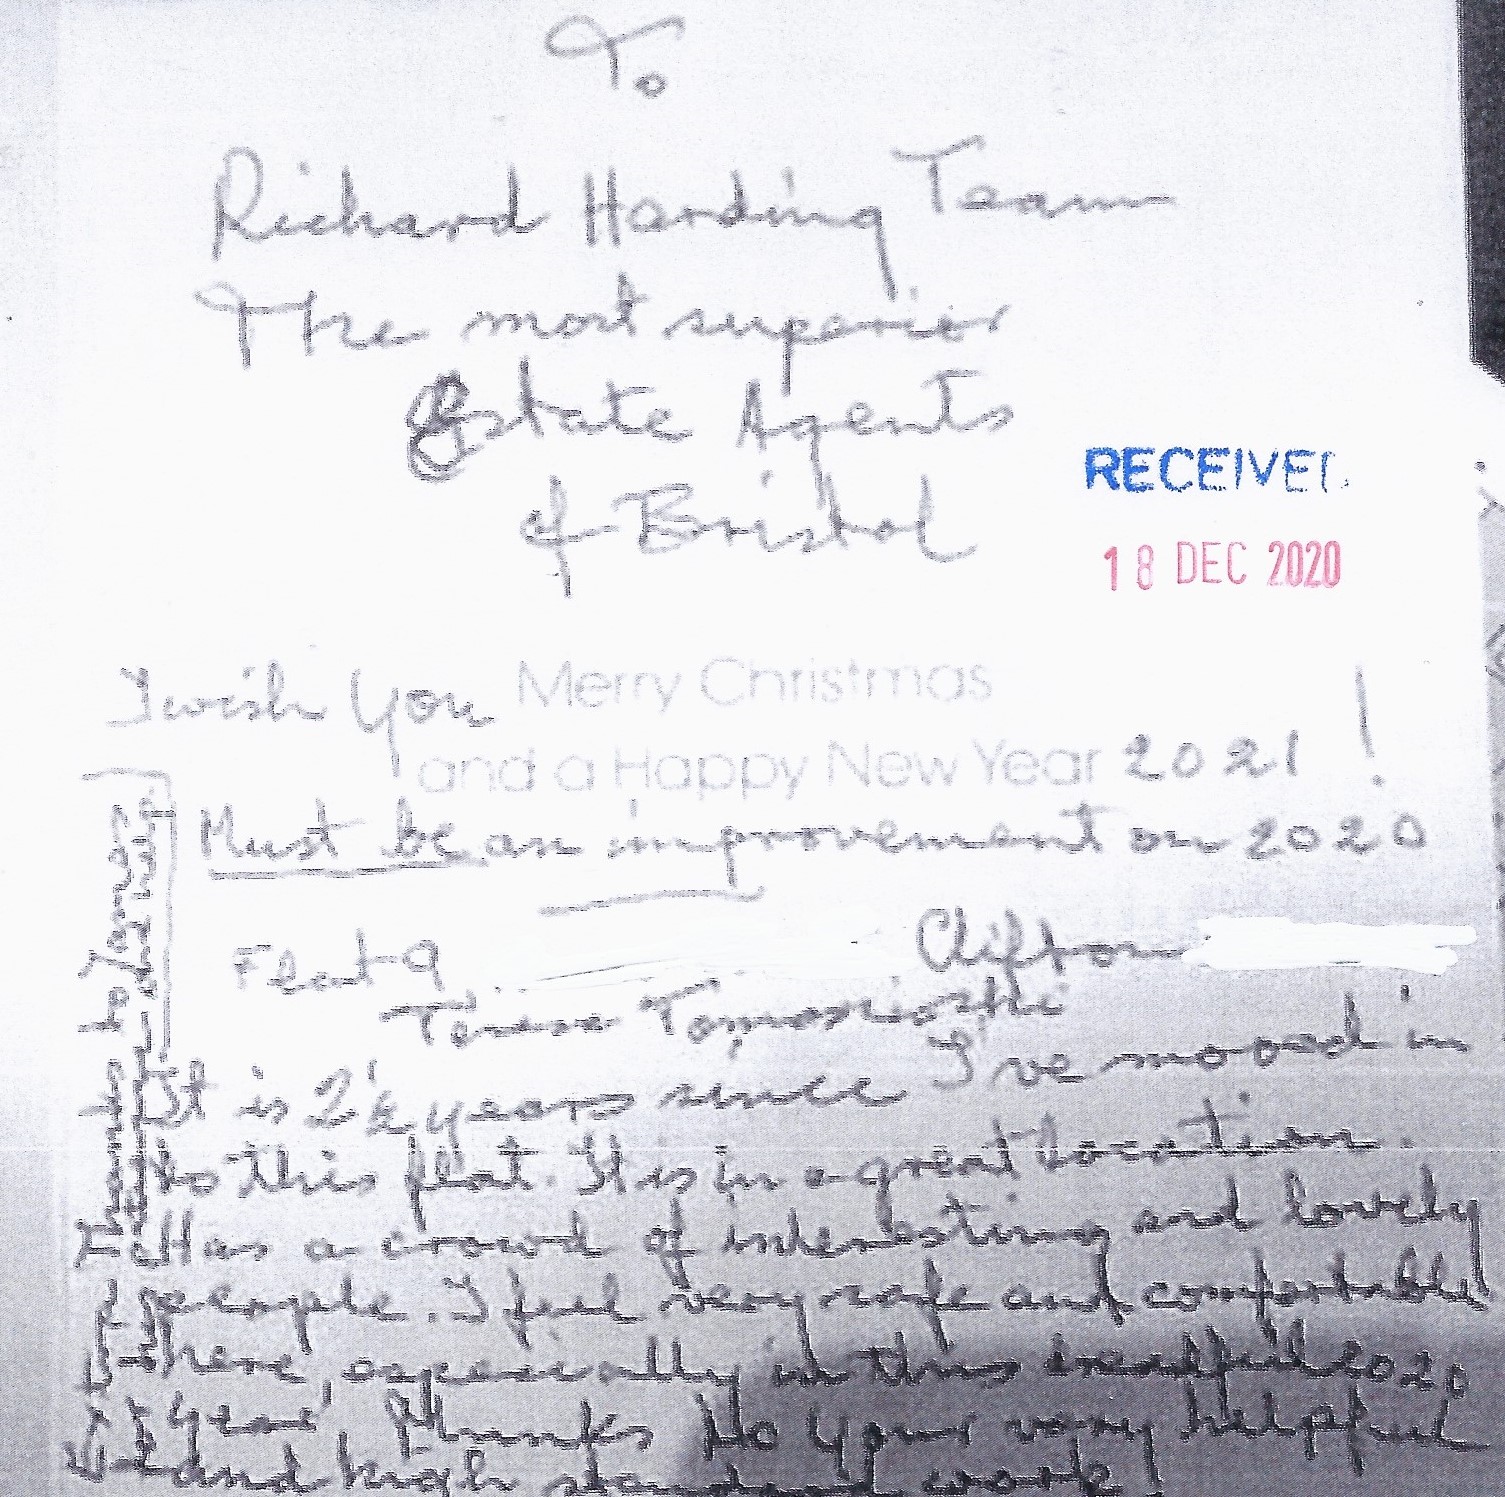 To
Richard Harding Team
The most superior
Estate Agents
of Bristol
RECEIVED
18 DEC 2020
I wish You Merry Christmas
and a Happy New Year 2021 !
Must be an improvement on 2020
Flat 9 Clifton
Teresa
It is 2½ years since I've moved in
to this flat. It is in a great location.
Has a crowd of interesting and lovely
people. I feel very safe and comfortable
here, especially in this dreadful 2020
year, thanks to your very helpful
and high standard work!